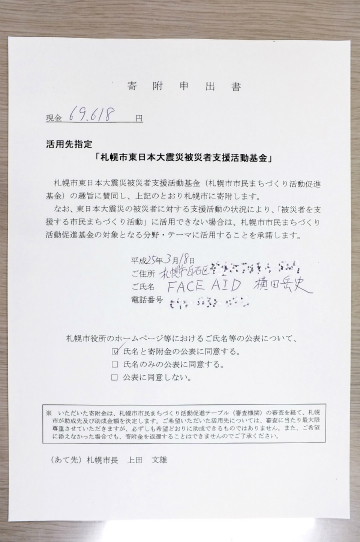 寄附申出書
現金 69,618 円
活用先指定
「札幌市東日本大震災被災者支援活動基金」
札幌市東日本大震災被災者支援活動基金（札幌市市民まちづくり活動促進
基金）の趣旨に賛同し、上記のとおり札幌市に寄附します。
なお、東日本大震災の被災者に対する支援活動の状況により、「被災者を支
援する市民まちづくり活動」に活用できない場合は、札幌市市民まちづくり
活動促進基金の対象となる分野・テーマに活用することを承諾します。
平成25年3月18日
ご住所 札幌市
ご氏名 FACE AID 横田岳史
電話番号
札幌市役所のホームページ等におけるご氏名等の公表について、
☑ 氏名と寄附金の公表に同意する。
□ 氏名のみの公表に同意する。
□ 公表に同意しない。
※ いただいた寄附金は、札幌市市民まちづくり活動促進テーブル（審査機関）の審査を経て、札幌
市が助成先及び助成金額を決定します。ご希望いただいた活用先については、審査に当たり最大限
尊重させていただきますが、必ずしも希望どおりに助成できるものではありません。また、ご希望
に添えなかった場合でも、寄附金を返還することはできませんのでご了承ください。
（あて先）札幌市長 上田 文雄